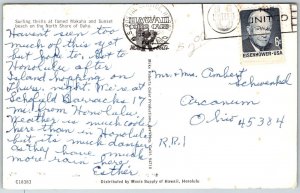 Surfing thrills at famed Makaha and Sunset
Beach on the North Shore of Oahu
Haven't seen too
much of this yet
but hope to. Got to
Honolulu after
Island hopping on
Thurs. night. We're at
Schofield Barracks 17
mi. from Honolulu.
Weather is much cooler
here than in Honolulu
but its much damper
as they have much
more rain here.
Esther
C16383
Distributed by Movie Supply of Hawaii, Honolulu
HAWAII
UNITED
6c
EISENHOWER·USA
Mr & Mrs
Arcanum
Ohio 45384
R.R.1